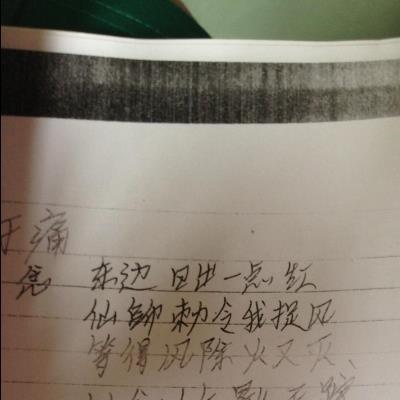 于痛
念 东边日出一点红
仙师勅令我捉风
等得风除火又灭、